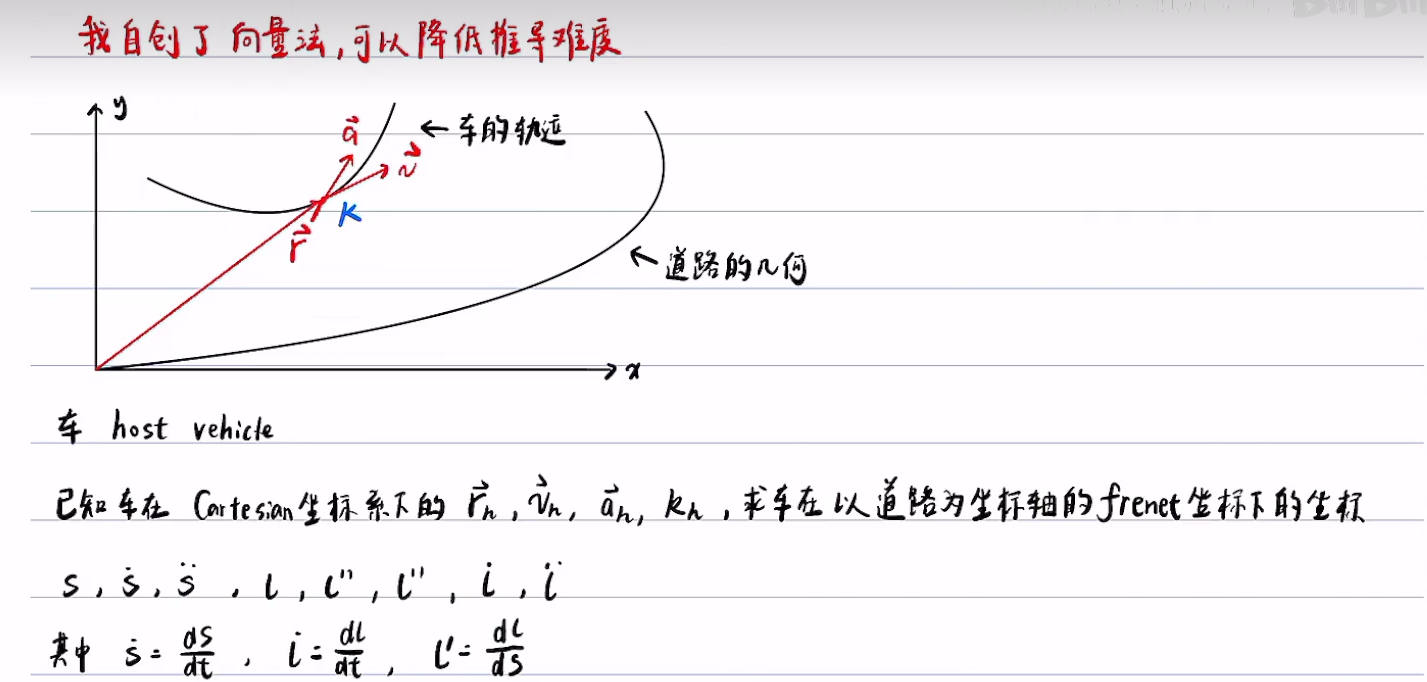 我自创了向量法,可以降低推导难度
y
a⃗
←车的轨迹
v⃗
K
r⃗
←道路的几何
x
车 host vehicle
已知车在 Cartesian坐标系下的 r⃗ₕ, v⃗ₕ, a⃗ₕ, kₕ, 求车在以道路为坐标轴的frenet坐标下的坐标
s, ṡ, s̈, l, l'', l'', l̇, l̈
其中 ṡ = ds/dt, l̇ = dl/dt, l' = dl/ds